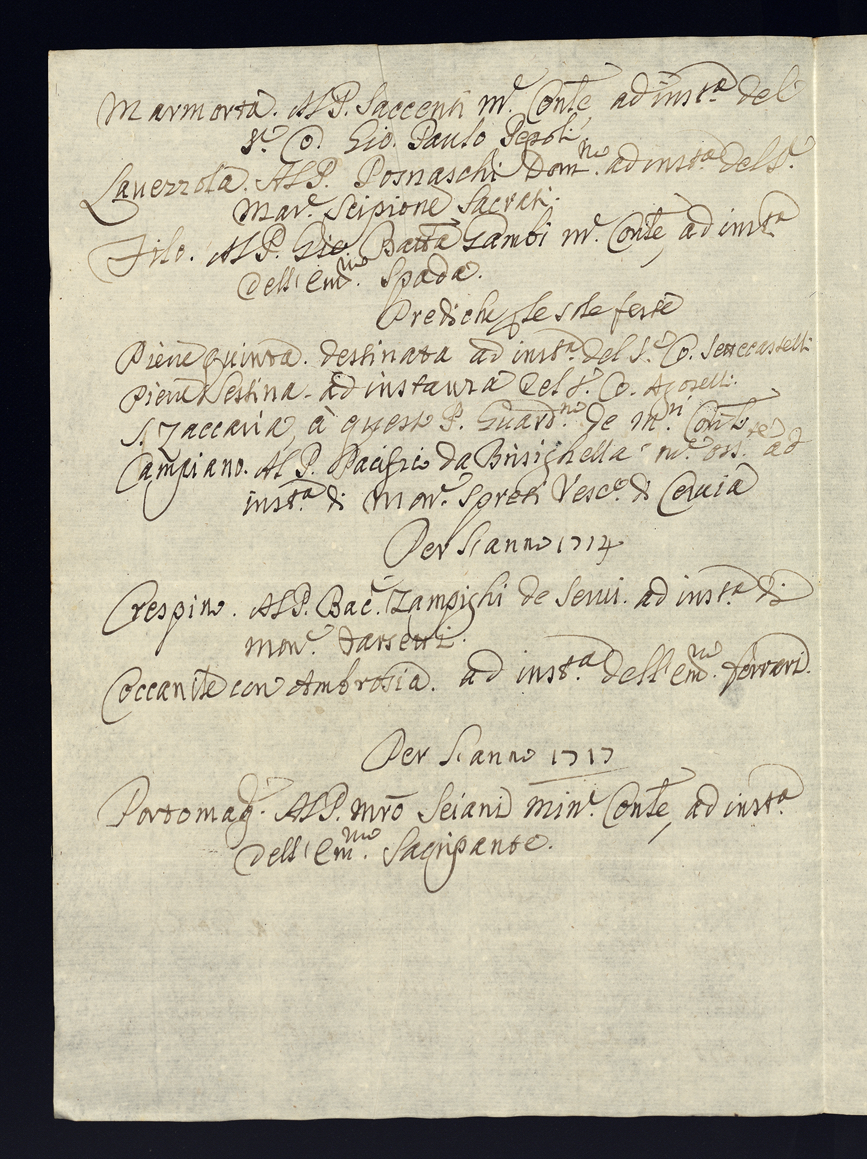 Marmorta. Al P. Saccenti m.r Conte, ad inst.a del
S.r Co. Gio. Paulo Pepoli
Lavezzola. Al P. Posnaschi Dom.no ad inst.a del S.r
Mar. Scipione Sacrati.
Filo. Al P. Gio Batta Zambi m.r Conte, ad inst.a
dell' Em.mo Spada.
Prediche p le sole feste
Pieve quinta. destinata ad inst.a del S.r Co. Settecastelli
Pieve Sestina. ad instanza del S.r Co. Agoselli.
S. Zaccaria, à questo P. Guard.no de m.ri Con.
Campiano. Al P. Pacifico da Brisighella m.r oss. ad
inst.a di Mon.r Spreti Vesc.o di Cervia
Per l'anno 1714
Crespino. Al P. Bac. Zampighi de Servi. ad inst.a di
mon.r Farsetti.
Coccanile con Ambrosia. ad inst.a dell' Em.mo ferrari.
Per l'anno 1717
Portomag.e Al P. Mrõ Seiani Min.r Conte, ad inst.a
dell' Em.mo Sagripante.